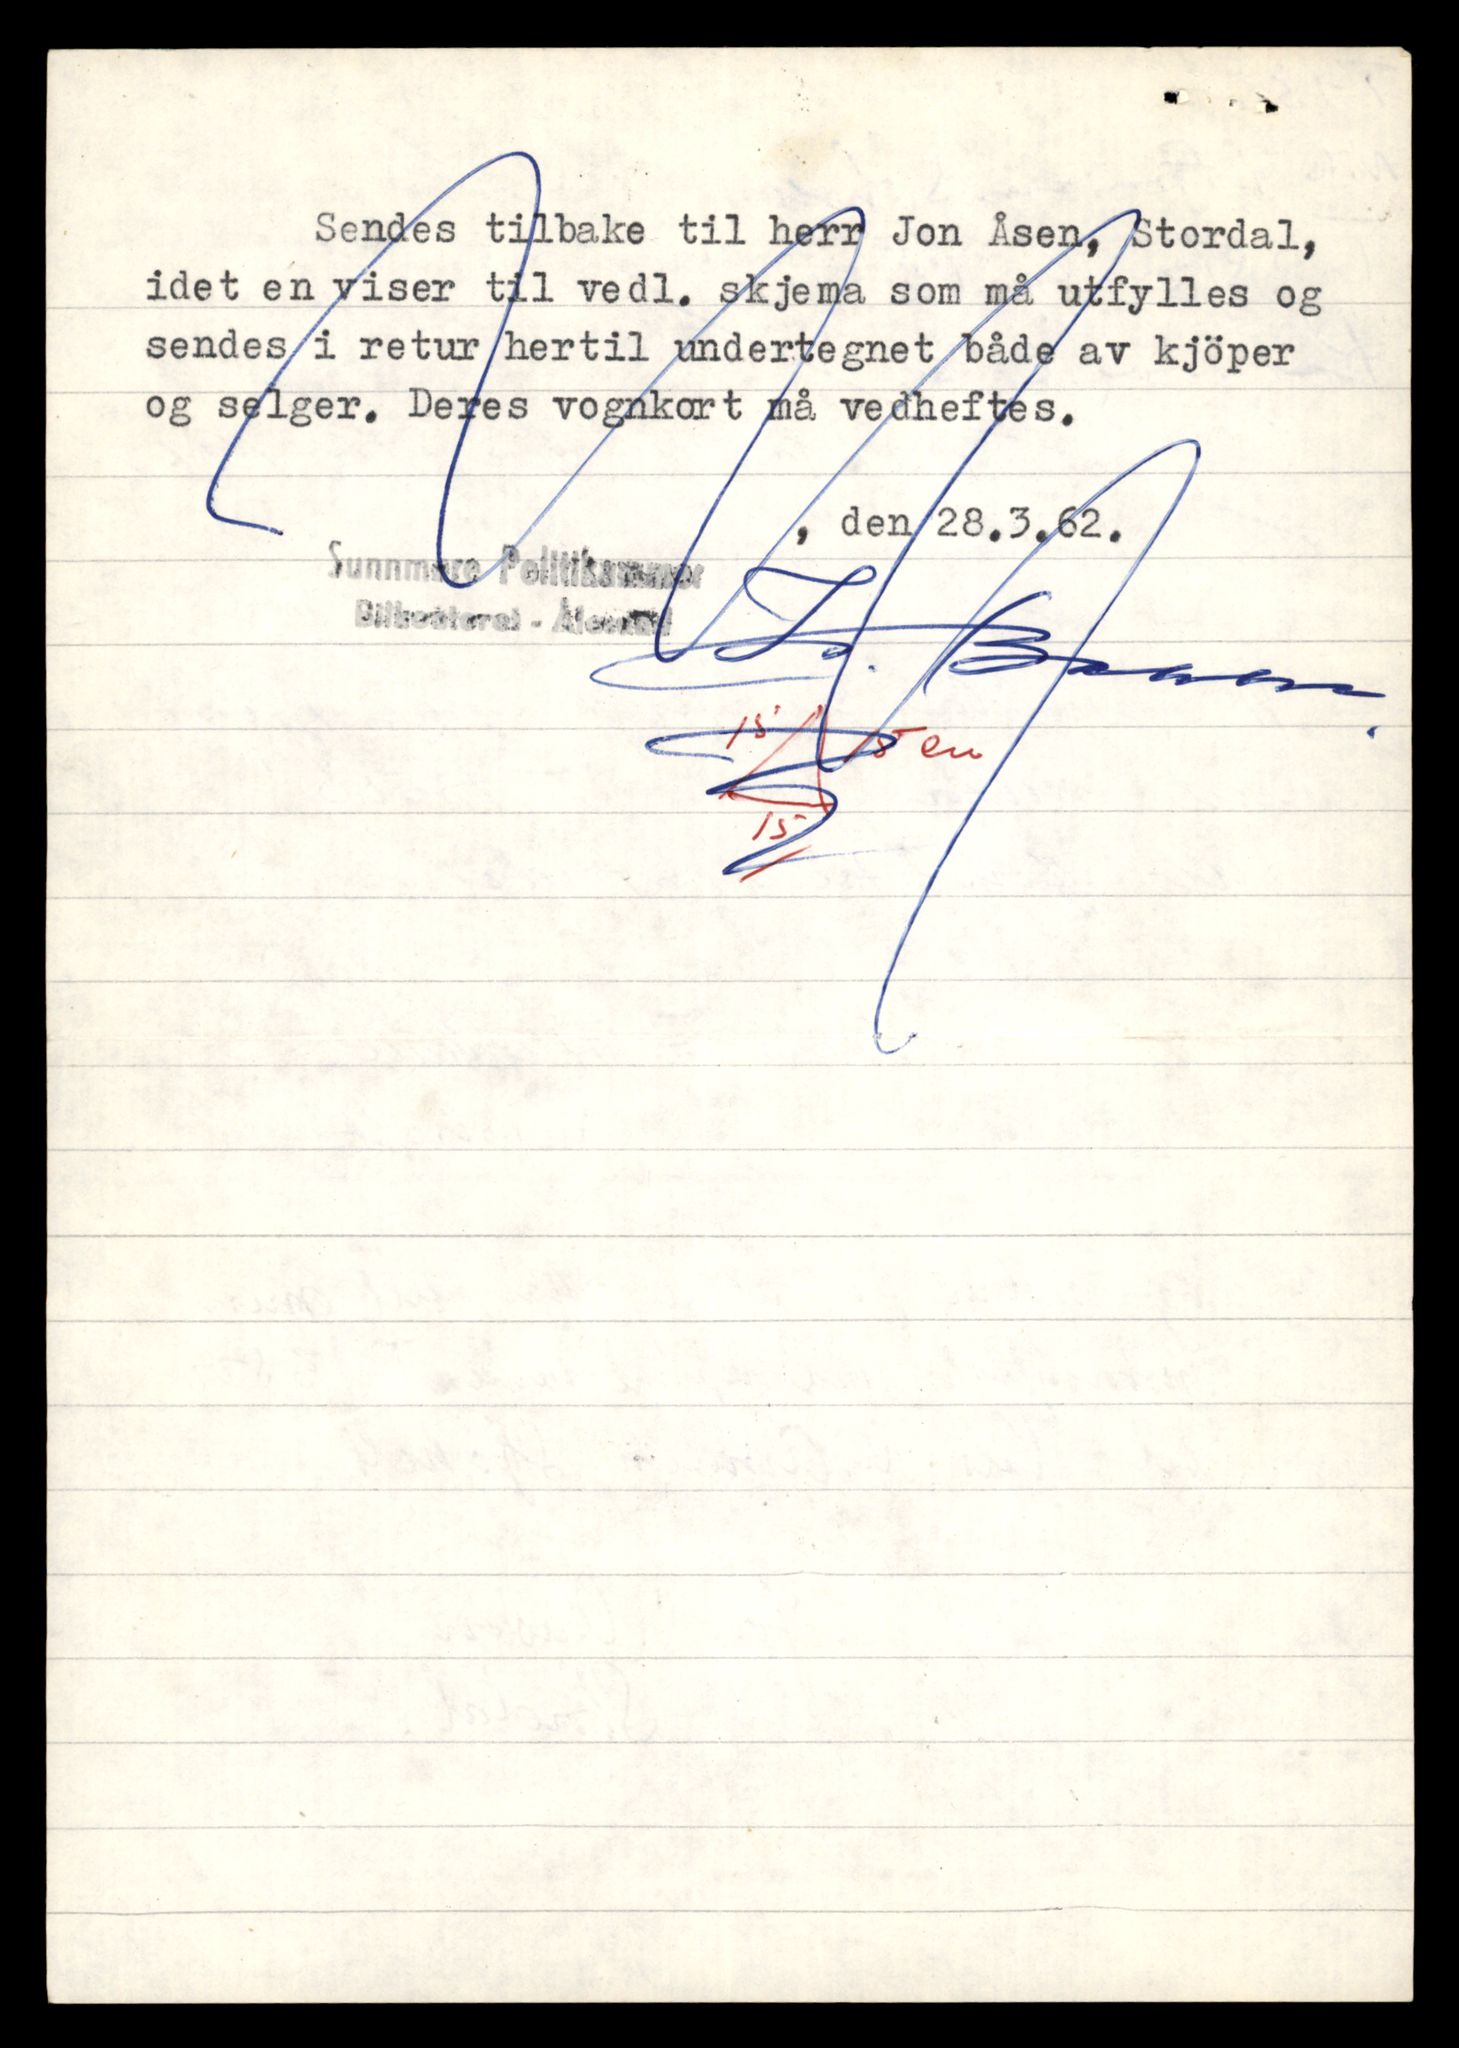 Sendes tilbake til herr Jon Åsen, Stordal,
idet en viser til vedl. skjema som må utfylles og
sendes i retur hertil undertegnet både av kjöper
og selger. Deres vognkort må vedheftes.
, den 28.3.62.
Sunnmøre Politikammer
Bilkontoret - Ålesund
15 15 en
15